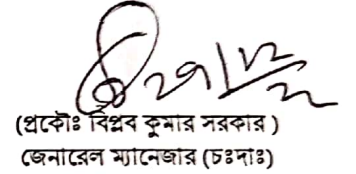 (প্রকৌঃ বিপ্লব কুমার সরকার)
জেনারেল ম্যানেজার (চঃদাঃ)